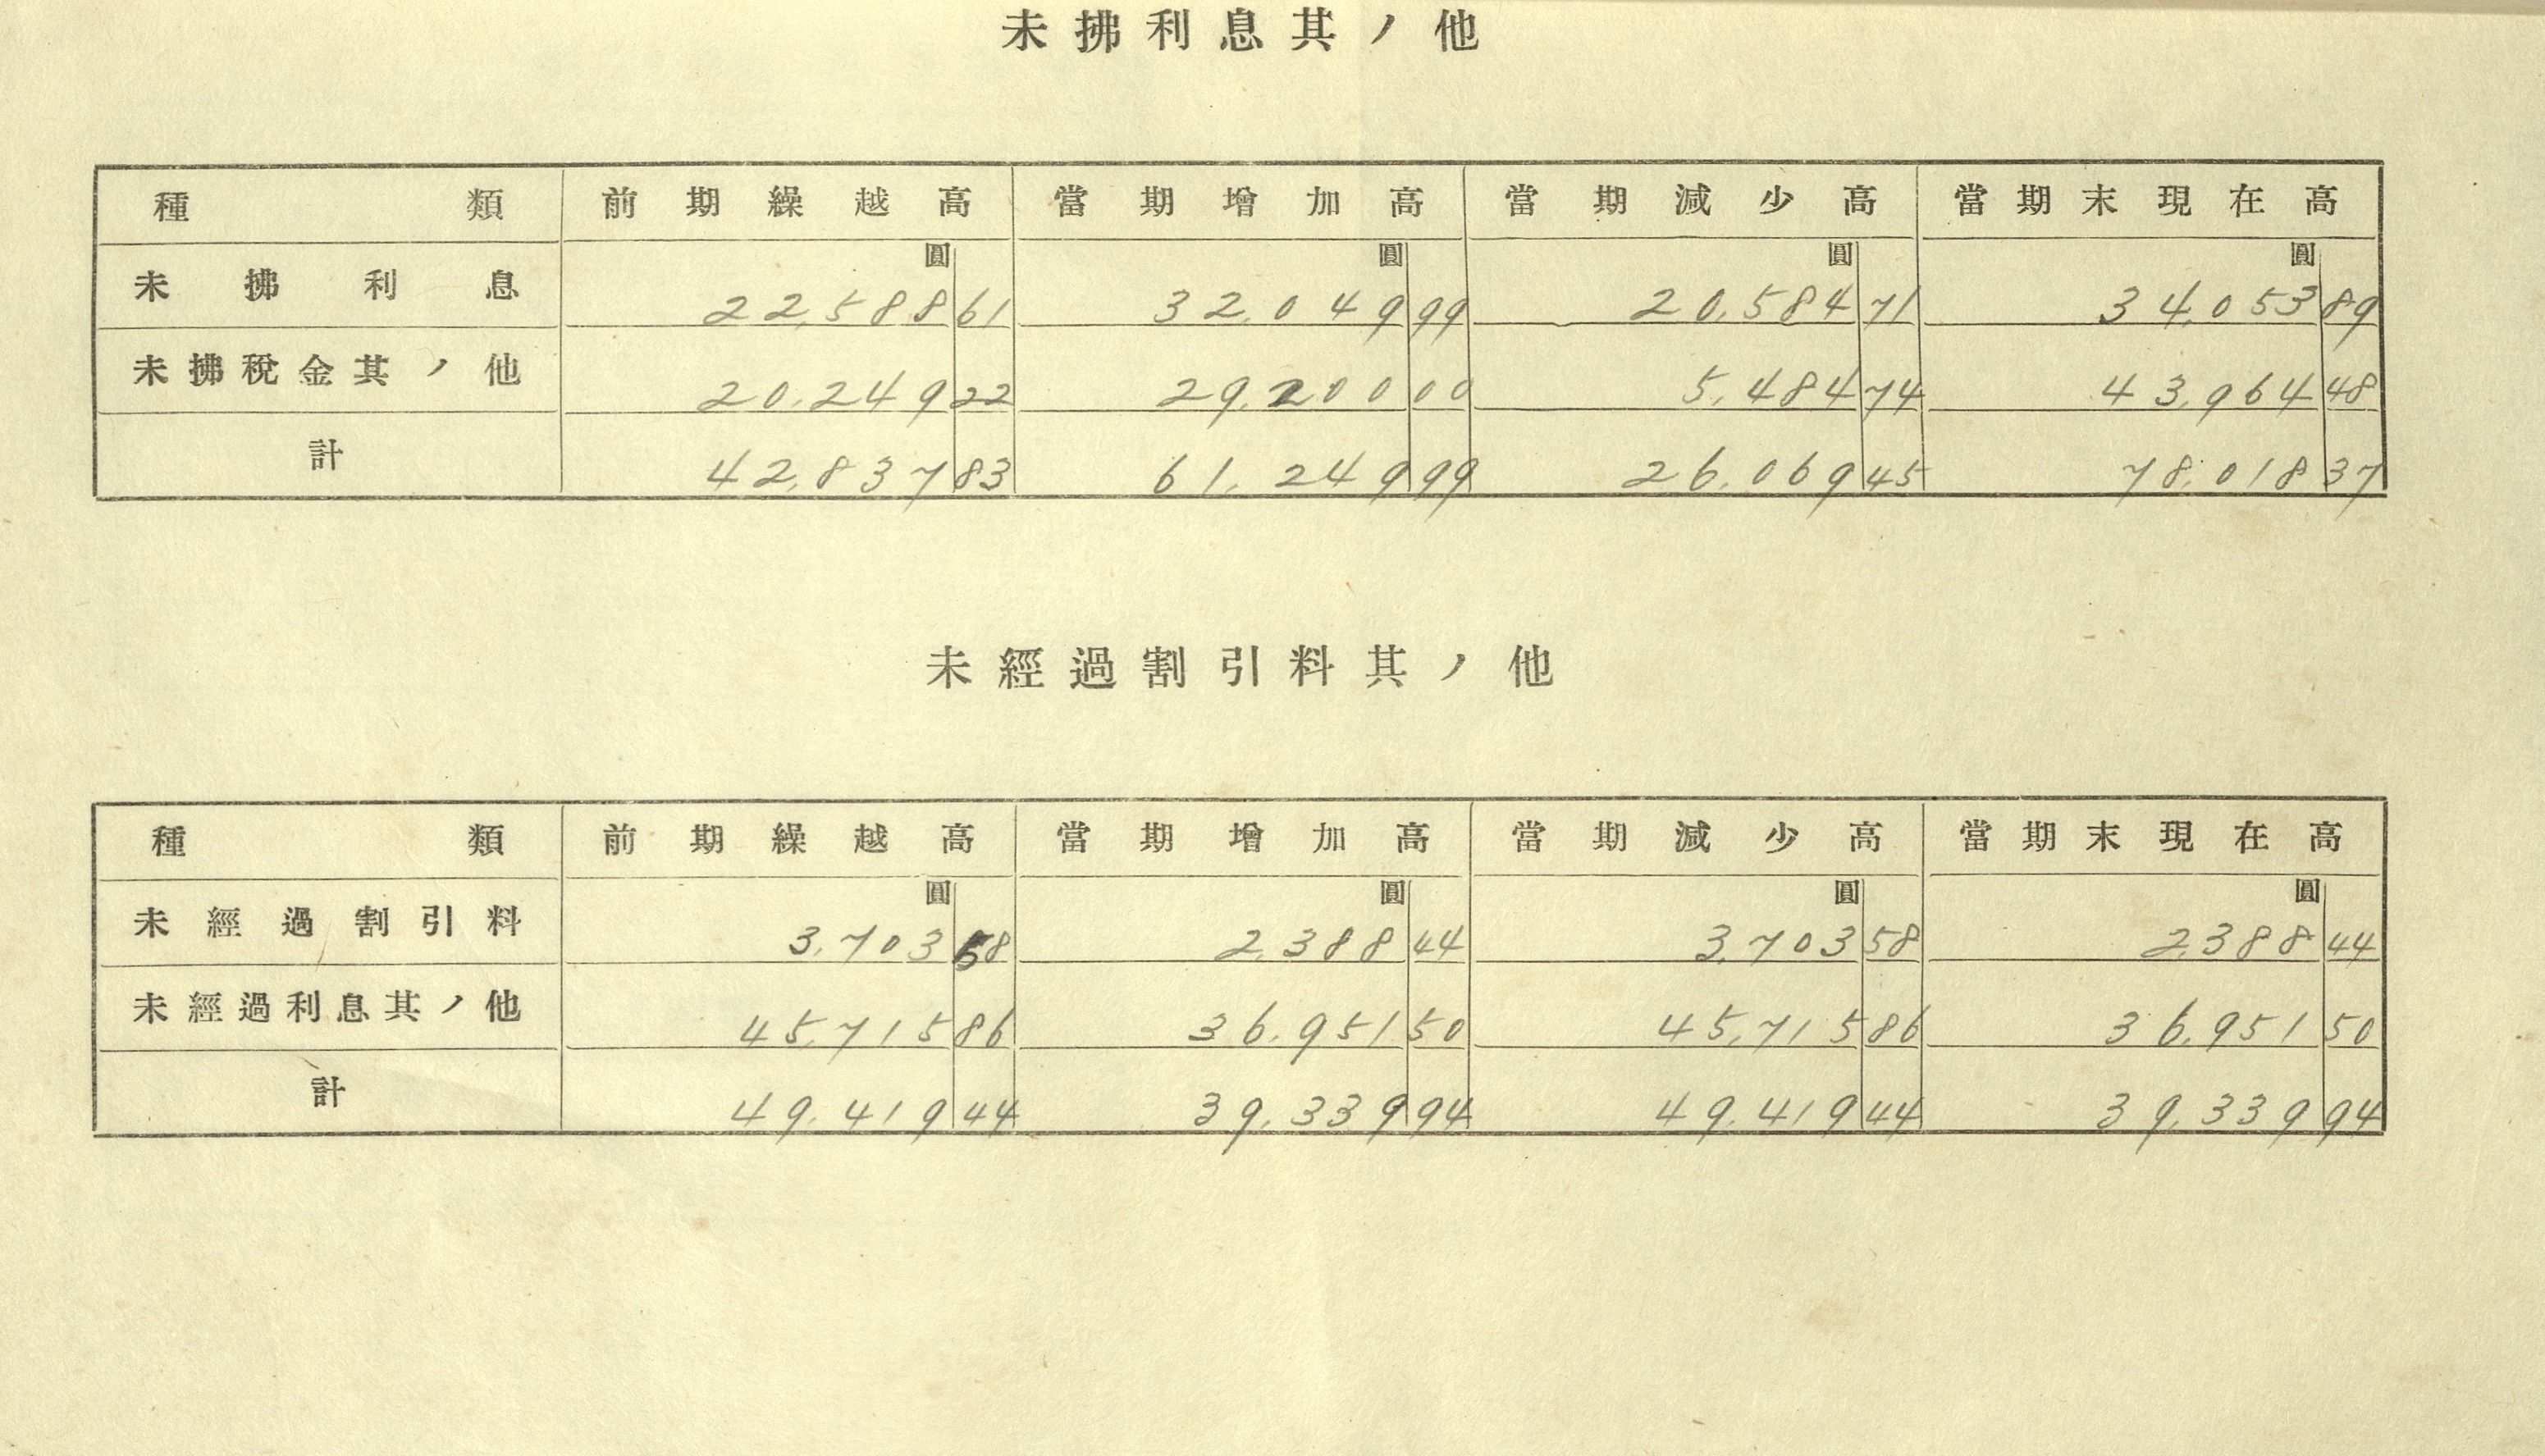 未拂利息其ノ他
種類 前期繰越高 當期增加高 當期減少高 當期末現在高
圓 圓 圓 圓
未拂利息 22,588 61 32,049 99 20,584 71 34,053 89
未拂稅金其ノ他 20,249 22 29,200 00 5,484 74 43,964 48
計 42,837 83 61,249 99 26,069 45 78,018 37
未經過割引料其ノ他
種類 前期繰越高 當期增加高 當期減少高 當期末現在高
圓 圓 圓 圓
未經過割引料 3,703 58 2,388 44 3,703 58 2,388 44
未經過利息其ノ他 45,715 86 36,951 50 45,715 86 36,951 50
計 49,419 44 39,339 94 49,419 44 39,339 94